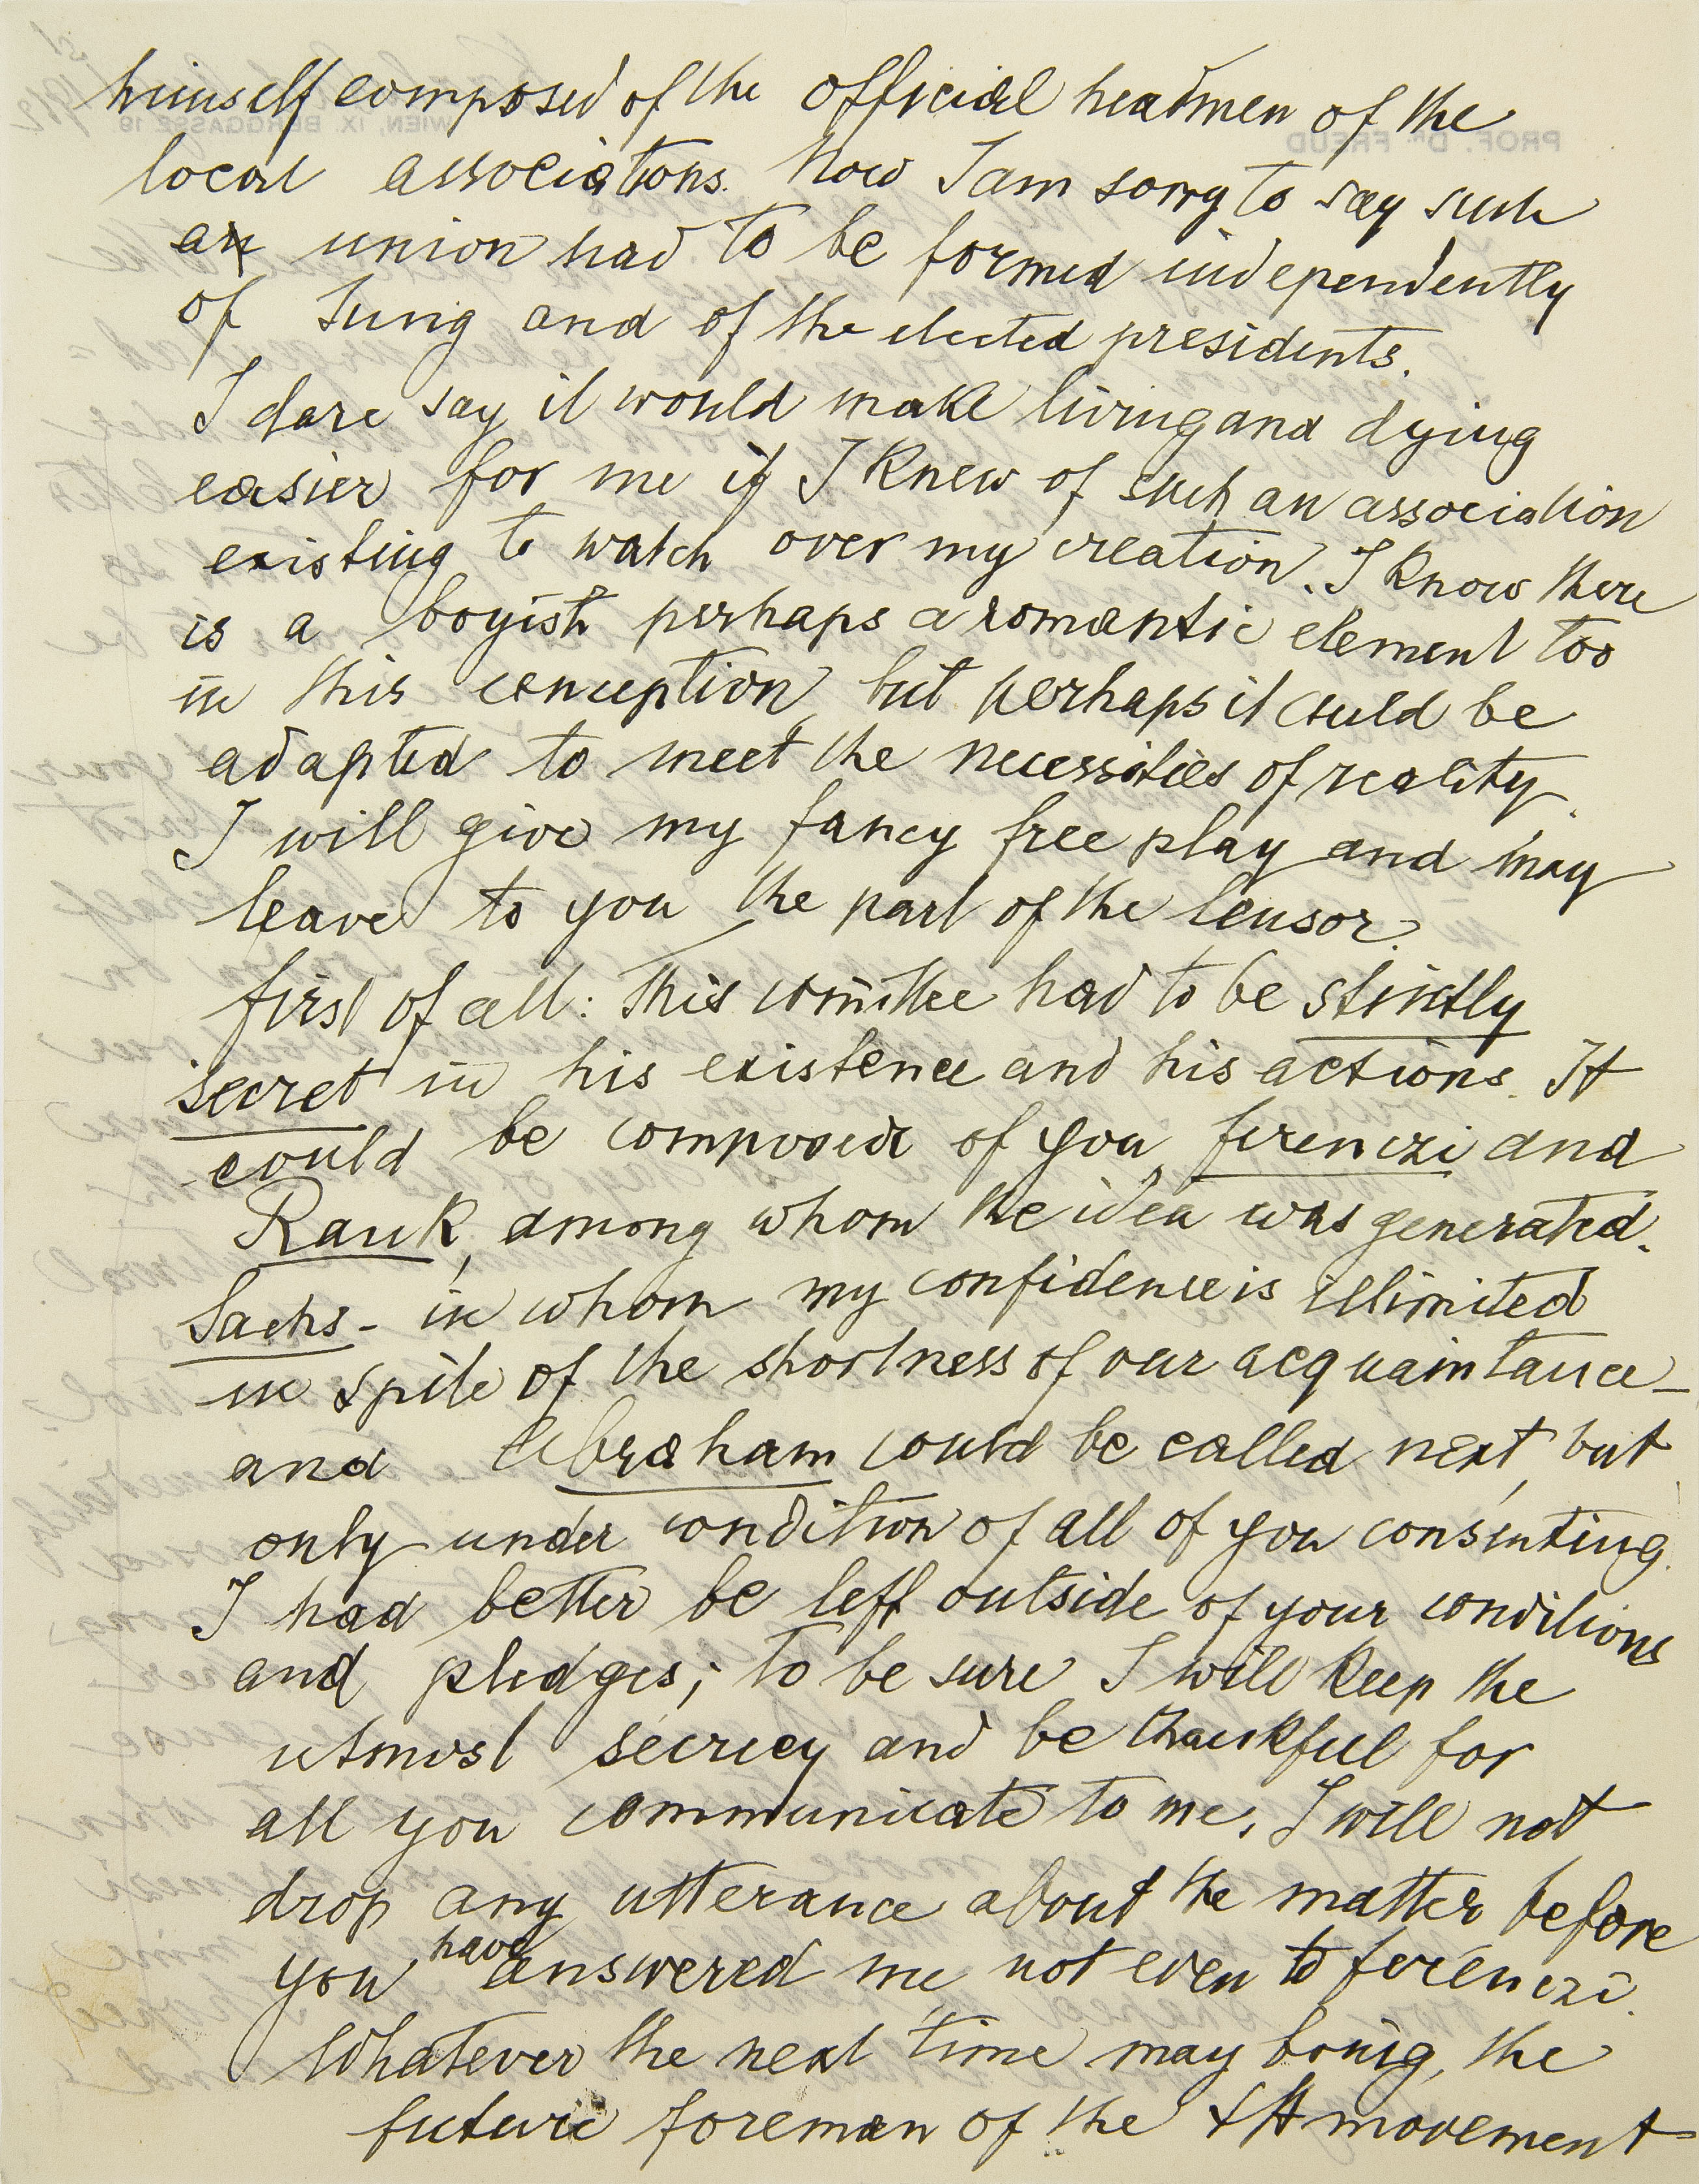 himself composed of the official headmen of the
local associations. Now I am sorry to say such
a union had to be formed independently
of Jung and of the elected presidents.
I dare say it would make living and dying
easier for me if I knew of such an association
existing to watch over my creation. I know there
is a boyish perhaps a romantic element too
in this conception, but perhaps it could be
adapted to meet the necessities of reality.
I will give my fancy free play and may
leave to you the part of the Censor.
First of all: This comittee had to be strictly
secret in his existence and his actions. It
could be composed of you, Ferenczi and
Rank, among whom the idea was generated.
Sachs - in whom my confidence is illimited
in spite of the shortness of our acquaintance -
and Abraham could be called next, but
only under condition of all of you consenting.
I had better be left outside of your conditions
and pledges; to be sure I will keep the
utmost secrecy and be thankful for
all you communicate to me. I will not
drop any utterance about the matter before
you have answered me, not even to Ferenczi.
Whatever the next time may bring, the
future foreman of the ΨA movement
PROF. DR. FREUD
WIEN, IX. BERGGASSE 19